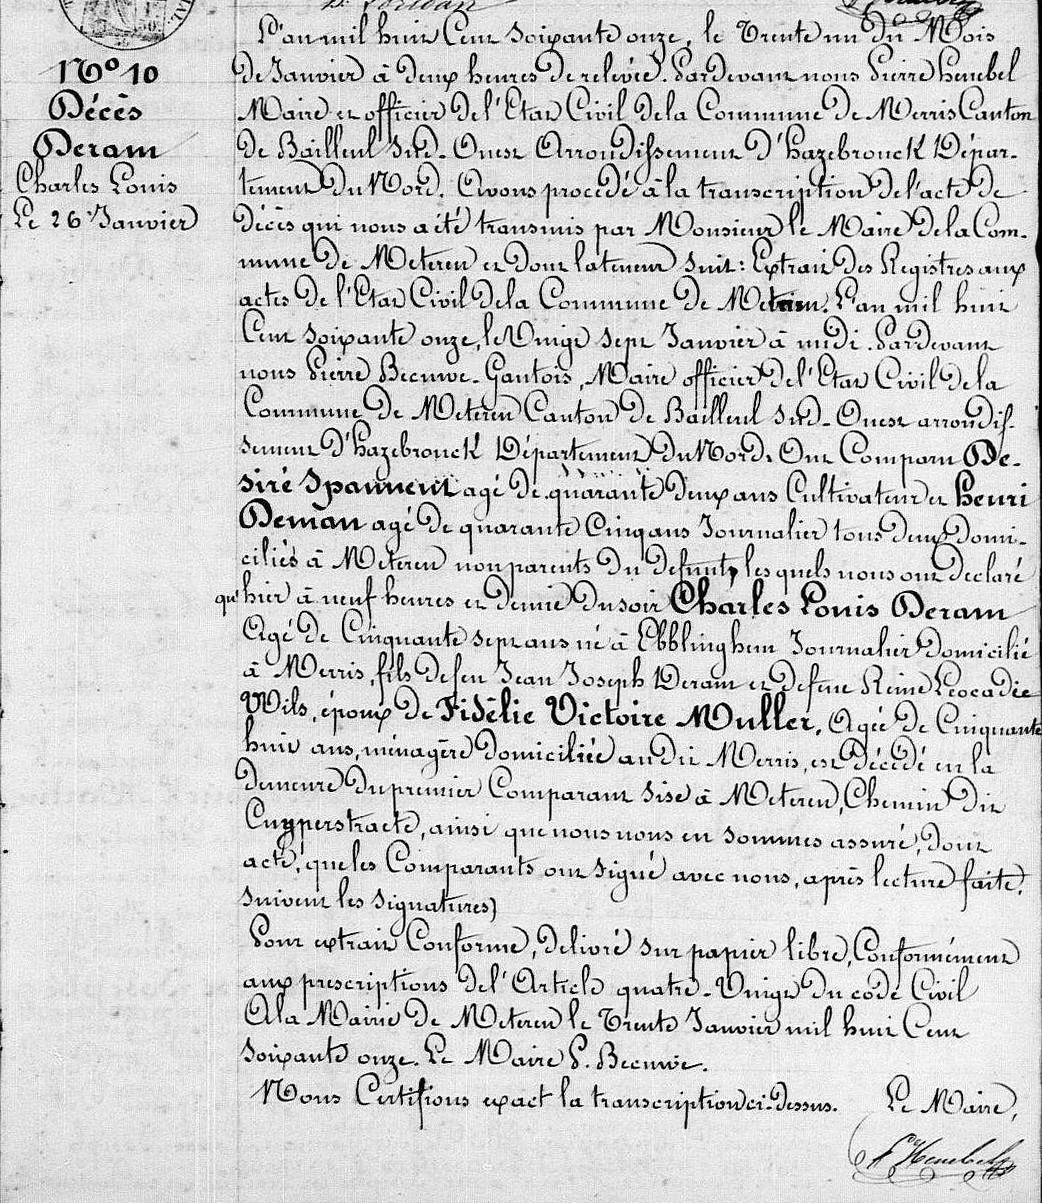 Nº 10
Décès
Deram
Charles Louis
Le 26 Janvier
L'an mil huit Cent Soixante onze, le Trente un du Mois
de Janvier à deux heures de relevée. Pardevant nous Pierre henebel
Maire et officier de l'Etat Civil de la Commune de Merris Canton
de Bailleul Sud-Ouest Arrondissement d'hazebrouck Dépar-
tement du Nord. Avons procédé à la transcription de l'acte de
décès qui nous a été transmis par Monsieur le Maire de la Com-
mune de Meteren et dont la teneur suit : Extrait des Registres aux
actes de l'Etat Civil de la Commune de Meteren. L'an mil huit
Cent soixante onze, le Vingt sept Janvier à midi. Pardevant
nous Pierre Becuwe-Gantois, Maire officier de l'Etat Civil de la
Commune de Meteren Canton de Bailleul Sud-Ouest arrondis-
sement d'hazebrouck Département du Nord. Ont Comparu De-
siré Spanneut agé de quarante deux ans Cultivateur et henri
Deman agé de quarante Cinq ans Journalier tous deux domi-
ciliés à Meteren non parents du defunt, lesquels nous ont declaré
qu'hier à neuf heures et demie du soir Charles Louis Deram
Agé de Cinquante sept ans né à Ebblinghem Journalier domicilié
à Merris, fils de feu Jean Joseph Deram et de feue Reine Leocadie
Wils, époux de Fidélie Victoire Muller, Agée de Cinquante
huit ans, ménagère domiciliée au dit Merris, est décédé en la
demeure du premier Comparant sise à Meteren, Chemin dit
Cuyperstraete, ainsi que nous nous en sommes assuré, dont
acte, que les Comparants ont signé avec nous, après lecture faite.
suivent les signatures)
Pour extrait Conforme, delivré sur papier libre, Conformément
aux prescriptions de l'Article quatre-Vingt du code Civil
A la Mairie de Meteren le Trente Janvier mil huit Cent
soixante onze. Le Maire P. Becuwe.
Nous Certifions exact la transcription ci-dessus. Le Maire,
P Henebel